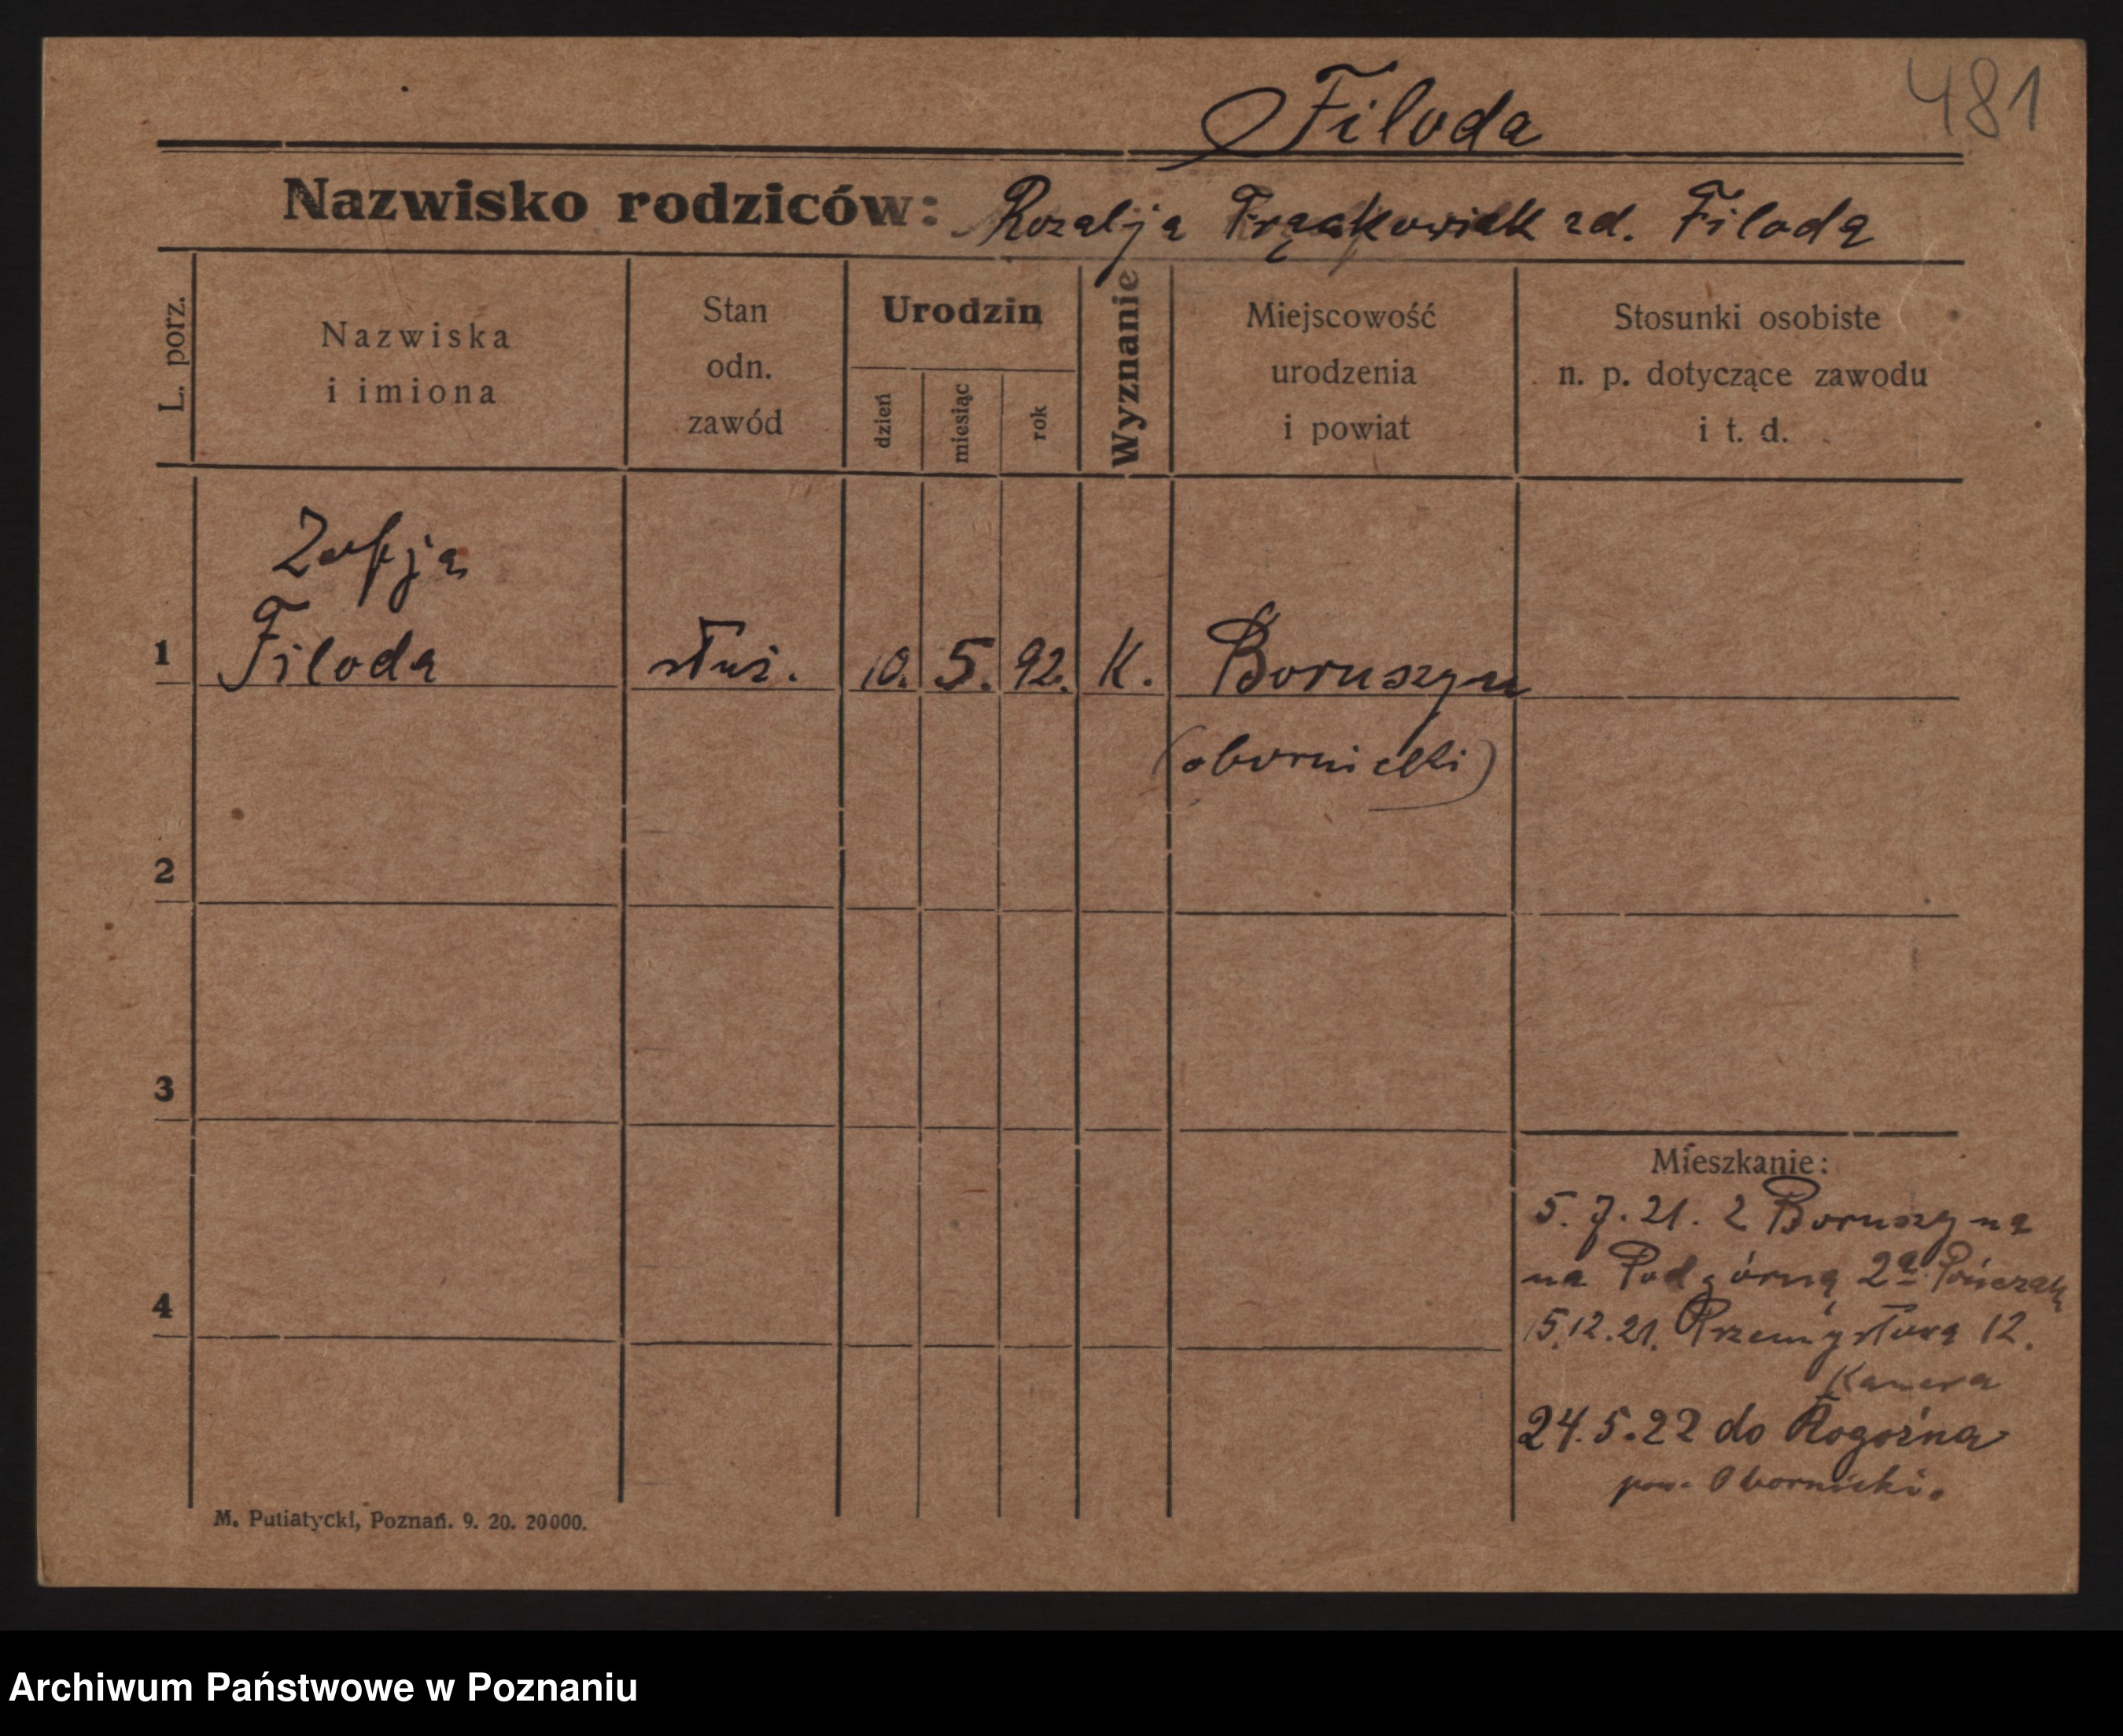 481
Filoda
Nazwisko rodziców: Rozalja Frąckowiak zd. Filoda
L. porz.
Nazwiska
i imiona
Stan
odn.
zawód
Urodzin
dzień
miesiąc
rok
Wyznanie
Miejscowość
urodzenia
i powiat
Stosunki osobiste
n. p. dotyczące zawodu
i t. d.
Zofja
1 Filoda służ. 10. 5. 92. K. Boruszyn
(obornicki)
2
3
4
Mieszkanie:
5. 7. 21. z Boruszyna
na Podgórną 2a
15.12.21. Przemysłowa 12.
24.5.22 do Rogoźna
pow. Obornicki.
M. Putiatycki, Poznań. 9. 20. 20000.
Archiwum Państwowe w Poznaniu